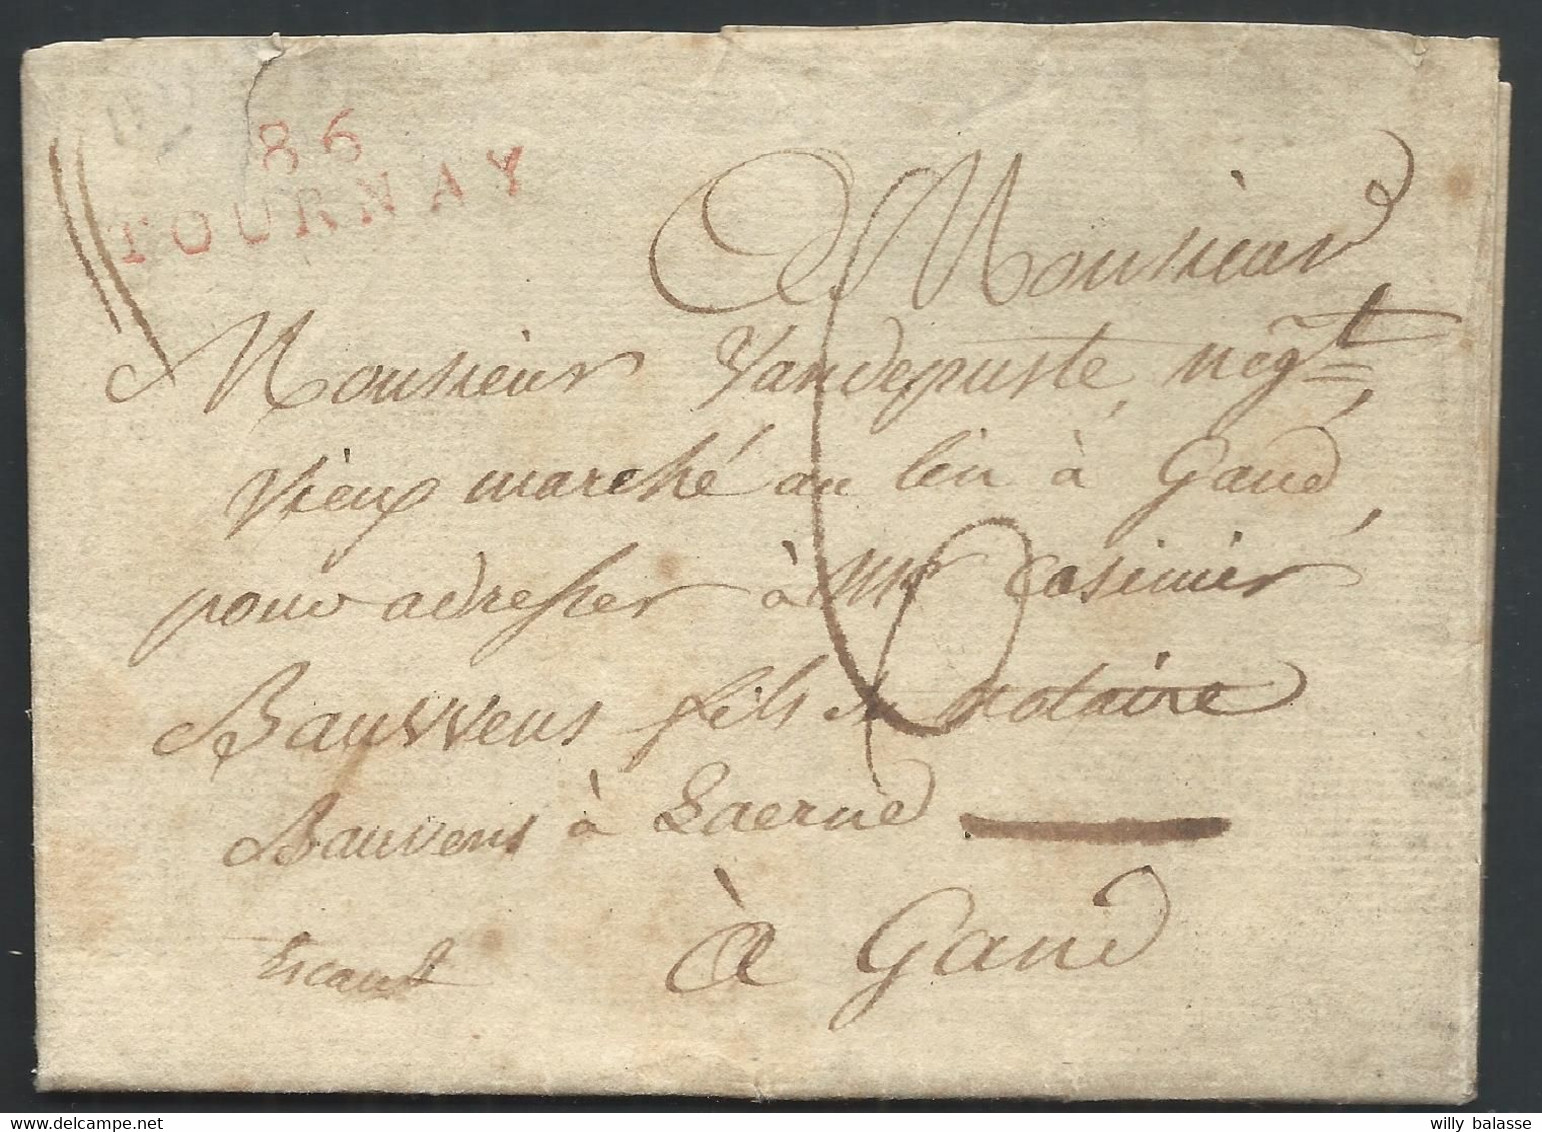 86
TOURNAY
Monsieur
Monsieur Vandepuste, negt
Vieux marché au lin à Gand
pour adresser à Mr Casimir
Bauwens fils notaire
Bauwens à Laerne
à Gand
Escaut
willy balasse